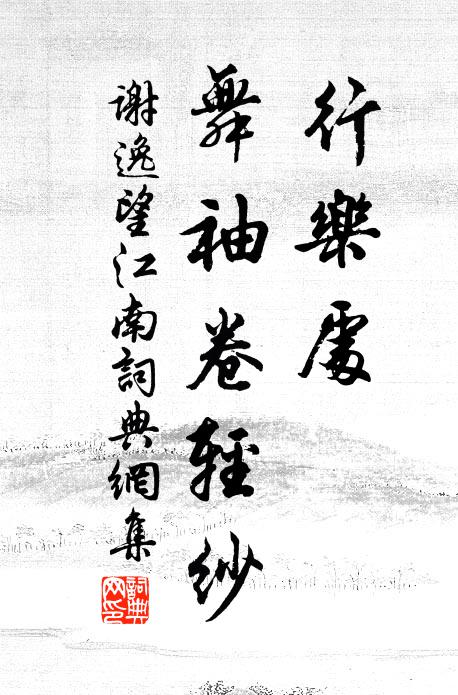 行樂處
舞袖卷輕紗
謝逸望江南詞典網集
詞典网印